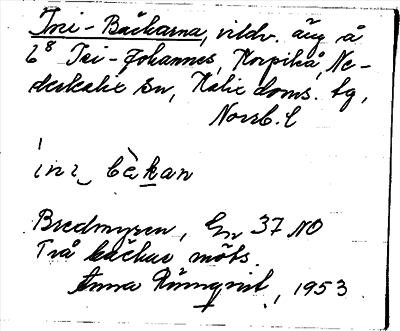 Ini-Bäckarna, vildv. äng å
6⁸ Isi-Johannes, Korpikå, Ne-
derkalix sn, Kalix doms. tg,
Norrb. l
ìnı bàkan
Bredmyren, Gn 37 NO
Två bäckar möts.
Anna Rönnqvist, 1953